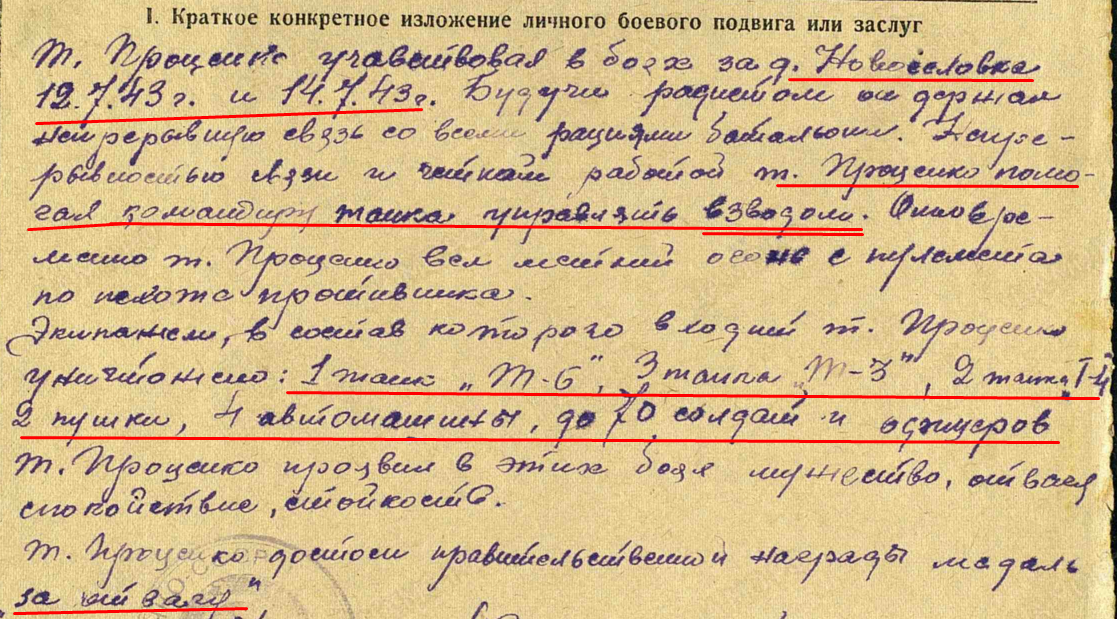 I. Краткое конкретное изложение личного боевого подвига или заслуг
т. Проценко учавствовал в боях за д. Новоселовка
12.7.43 г. и 14.7.43 г. Будучи радистом он держал
непрерывную связь со всеми рациями батальона. Непре-
рывностью связи и четкой работой т. Проценко помо-
гал командиру танка управлять взводом. Одновре-
менно т. Проценко вел меткий огонь с пулемета
по пехоте противника.
Экипажем, в состав которого входит т. Проценко
уничтожено: 1 танк „Т-6", 3 танка „Т-3", 2 танка „Т-4
2 пушки, 4 автомашины, до 70 солдат и офицеров
т. Проценко проявил в этих боях мужество, отвагу
спокойствие, стойкость.
т. Проценко достоин правительственной награды медаль
„за отвагу"